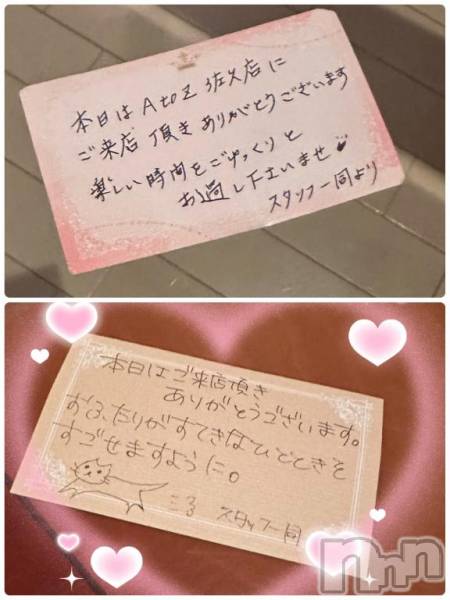 本日はAtoZ佐久店に
ご来店頂きありがとうございます
楽しい時間をごゆっくりと
お過し下さいませ
スタッフ一同より
本日はご来店頂き
ありがとうございます。
おふたりがすてきなひとときを
すごせますように。
スタッフ一同
nnn